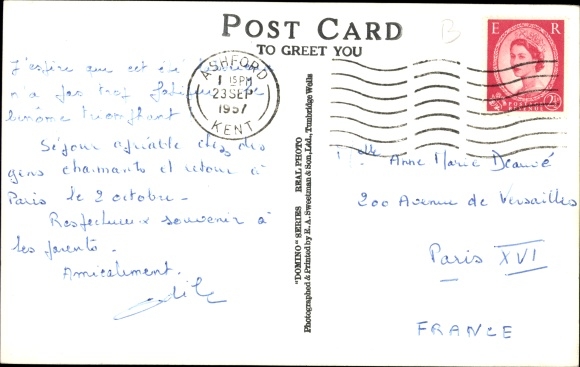 POST CARD
TO GREET YOU
E R
POSTAGE
2½
ASHFORD
1 15PM
23 SEP
1957
KENT
J'espère que cet été
n'a pas trop
binôme triomphant
Séjour agréable chez des
gens charmants et retour à
Paris le 2 octobre.
Respectueux souvenir à
tes parents.
Amicalement.
Odile
"DOMINO" SERIES REAL PHOTO
Photographed & Printed by R. A. Sweetman & Son, Ltd., Tunbridge Wells
Mlle Anne Marie
200 Avenue de Versailles
Paris XVI
FRANCE
B